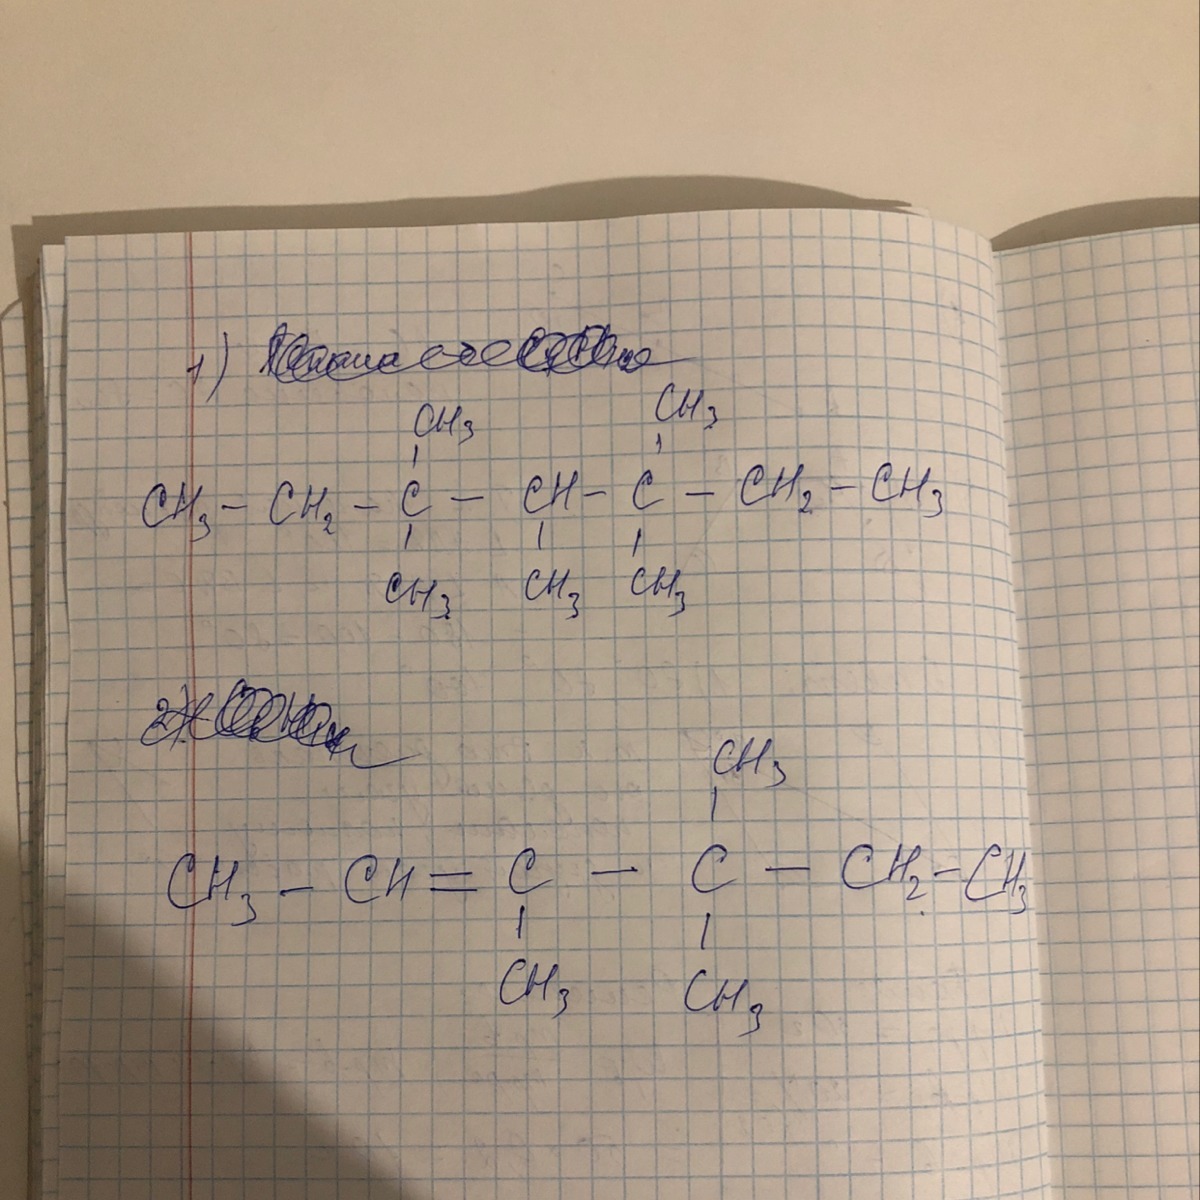 1)
CH₃ CH₃
CH₃ – CH₂ – C – CH – C – CH₂ – CH₃
CH₃ CH₃ CH₃
2)
CH₃
CH₃ – CH = C – C – CH₂ – CH₃
CH₃ CH₃